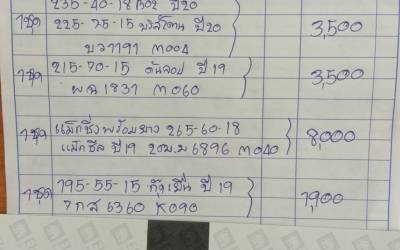 235-40-18 ปี20
1ชุด 225-75-15 ปี20 3,500
บว7791 ต004
1ชุด 215-70-15 ดันลอป ปี19 3,500
ผฉ 1837 ต060
1ชุด แม็กซิ่งพร้อมยาง 265-60-18 8,000
ปี19 6896 ต040
1ชุด 195-55-15 ปี19 1,900
7กส 6360 K090